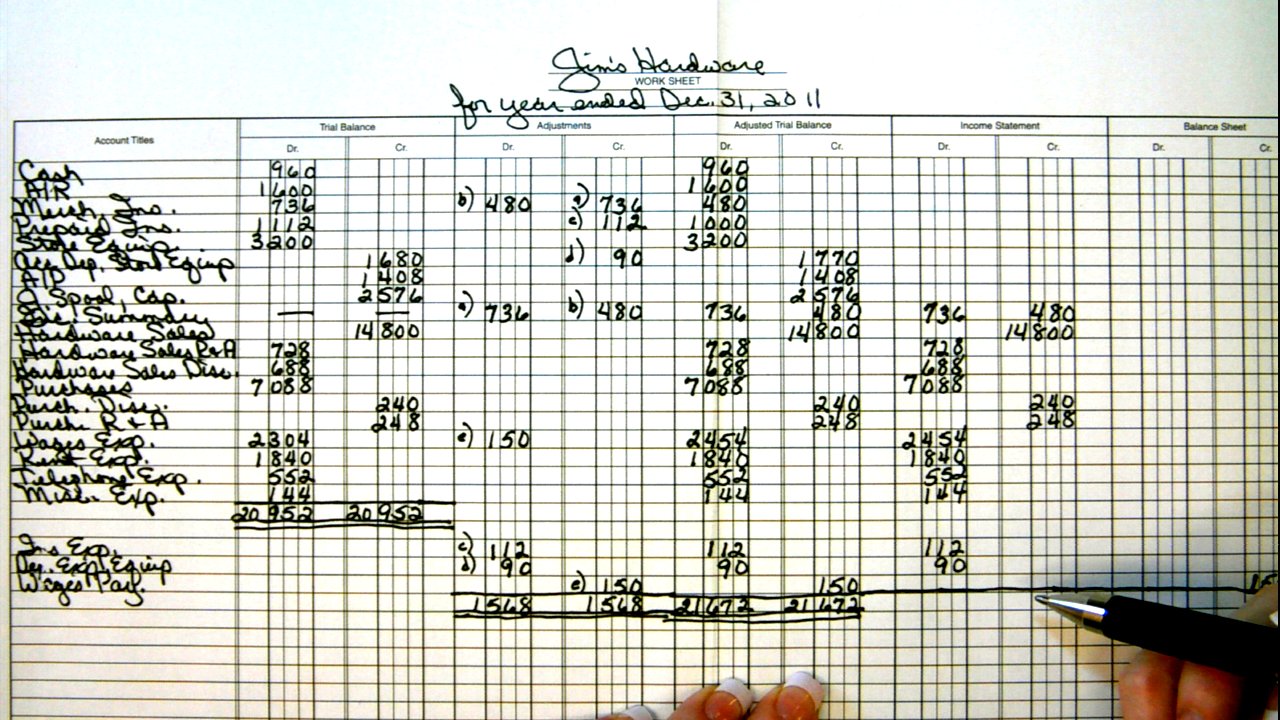 Jim's Hardware
WORK SHEET
for year ended Dec. 31, 2011
Account Titles Trial Balance Adjustments Adjusted Trial Balance Income Statement Balance Sheet
Dr. Cr. Dr. Cr. Dr. Cr. Dr. Cr. Dr. Cr.
Cash 960 960
A/R 1600 1600
Merch. Ins. 736 b) 480 a) 736 480
Prepaid Ins. 1112 c) 112 1000
Store Equip. 3200 3200
Acc. Dep. Store Equip 1680 d) 90 1770
A/P 1408 1408
J. Spool, Cap. 2576 2576
Inc. Summary — — a) 736 b) 480 736 480 736 480
Hardware Sales 14800 14800 14800
Hardware Sales R+A 728 728 728
Hardware Sales Disc. 688 688 688
Purchases 7088 7088 7088
Purch. Disc. 240 240 240
Purch. R + A 248 248 248
Wages Exp. 2304 e) 150 2454 2454
Rent Exp. 1840 1840 1840
Telephone Exp. 552 552 552
Misc. Exp. 144 144 144
20952 20952
Ins Exp. c) 112 112 112
Dep. Exp. Equip d) 90 90 90
Wages Pay. e) 150 150
1568 1568 21672 21672